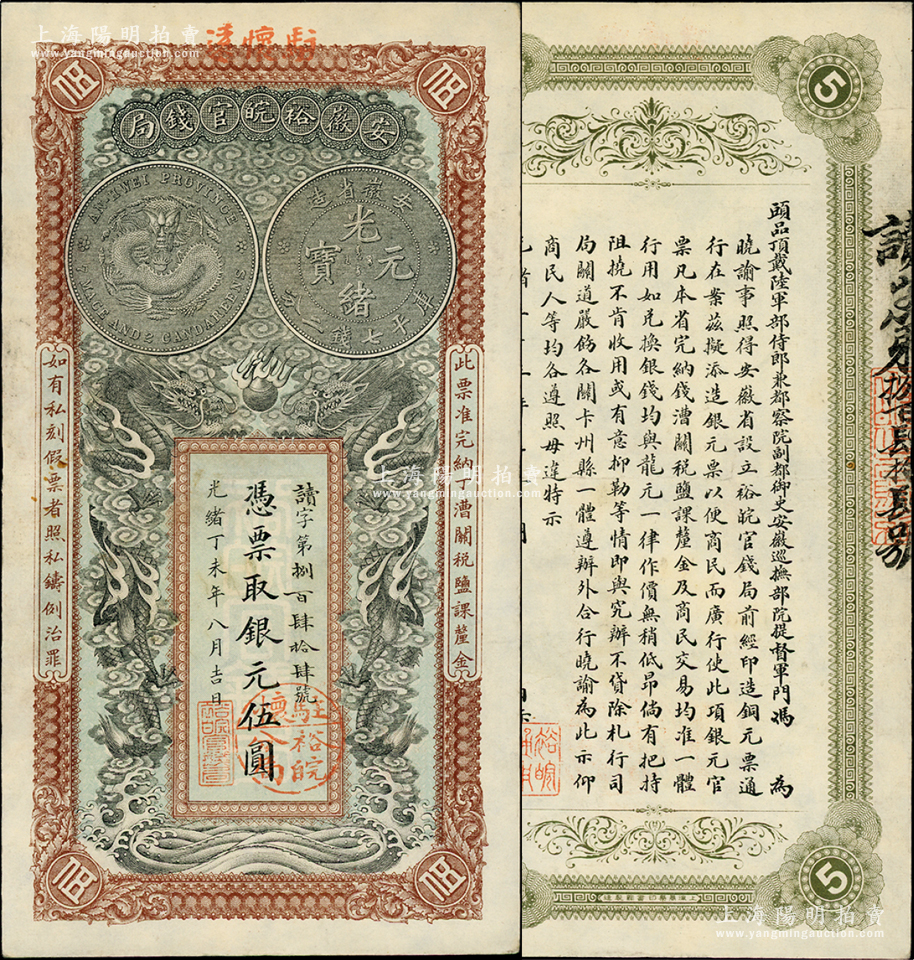 上海陽明拍賣
www.yangmingauction.com
駐懷
伍
伍
安徽裕皖官錢局
AN-HWEI PROVINCE
MACE AND 2 CANDAREENS
安徽省造
光緒元寶
庫平七錢
此票准完納丁漕關税鹽課釐金
如有私刻假票者照私鑄例治罪
讀字第捌百肆拾肆號
憑票取銀元伍圓
光緒丁未年八月吉日
駐懷裕皖
伍
伍
5
頭品頂戴陸軍部侍郎兼都察院副都御史安徽巡撫部院提督軍門馮 為
曉諭事照得安徽省設立裕皖官錢局前經印造銅元票通
行在案茲擬添造銀元票以便商民而廣行使此項銀元官
票凡本省完納錢漕關税鹽課釐金及商民交易均准一體
行用如兑換銀錢均與龍元一律作價無稍低昂倘有把持
阻撓不肯收用或有意抑勒等情即與究辦不貸除札行司
局關道嚴飭各關卡州縣一體遵辦外合行曉諭為此示仰
商民人等均各遵照毋違特示
裕皖
5
上海陽明拍賣
www.yangmingauction.com
上海陽明拍賣
www.yangmingauction.com